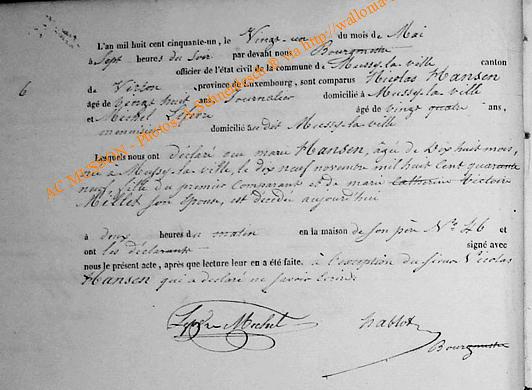 L'an mil huit cent cinquante-un, le Vingt-un du mois de Mai
à Sept heures du Soir par devant nous Bourgmestre
officier de l'état civil de la commune de Mussy-la-ville canton
6
de Virton, province de Luxembourg, sont comparus Nicolas Hansen
âgé de trente huit ans, Journalier domicilié à Mussy-la-ville
et Michel Lefèvre âgé de vingt quatre ans,
menuisier domicilié au dit Mussy-la-ville
Lesquels nous ont déclaré que marie Hansen, âgée de Dix huit mois,
née à Mussy-la-ville, le dix neuf novembre mil huit Cent quarante
neuf, fille du premier Comparant et de marie Catherine Victoire
Millet son épouse, est décédée aujourd'hui
à deux heures du matin en la maison de son père N° 46 et
ont les déclarants signé avec
nous le présent acte, après que lecture leur en a été faite, à l'exception du sieur Nicolas
Hansen qui a déclaré ne savoir écrire.
Michel hablot
Bourgmestre
AC MUSSON - Photos: A. via http://wallonia